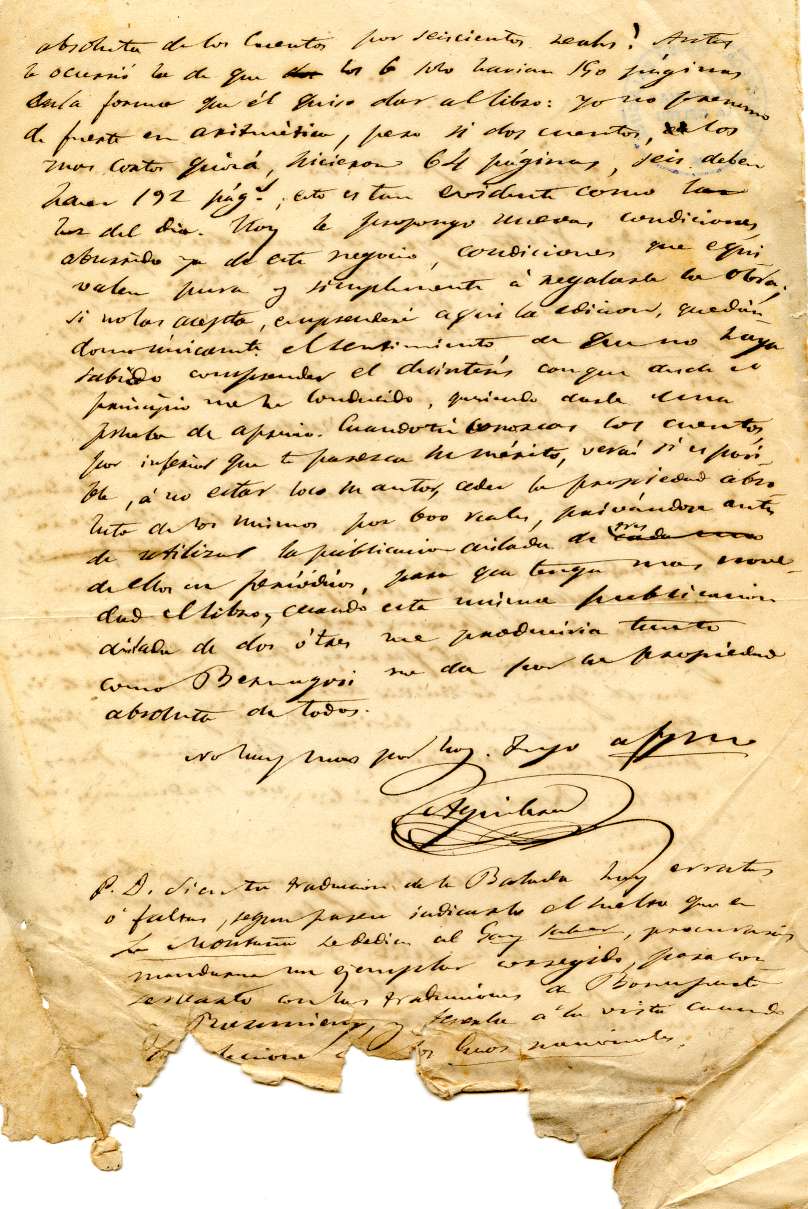 absoluta de los Cuentos por seiscientos reales! Antes
le ocurrió la de que los 6 solo harian 150 páginas
en la forma que él quiso dar al libro: yo no presumo
de fuerte en aritmética, pero si dos cuentos, los
mas cortos quizá, hicieron 64 páginas, seis deben
hacer 192 pág.s, esto es tan evidente como la
luz del dia. Hoy le propongo nuevas condiciones,
aburrido ya de este negocio, condiciones que equi
valen pura y simplemente á regalarle la obra;
si no las acepta, emprenderé aqui la edicion, quedán-
dome únicamte. el sentimiento de que no haya
sabido comprender el desinterés con que desde el
principio me he conducido, queriendo darle una
prueba de aprecio. Cuando tú conozcas los cuentos,
por inferior que te parezca su mérito, verás si es posi-
ble, á no estar loco su autor, ceder la propiedad abso
luta de los mismos por 600 reales, privándose antes
de utilizar la publicacion aislada de tres
de ellos en periódicos, para que tenga mas nove-
dad el libro, cuando esta misma publicacion
aislada de dos ó tres me produciria tanto
como Bernagosi me da por la propiedad
absoluta de todos.
No hay mas por hoy. Tuyo affmo
Aguilera
P. D. Si en tu traduccion de la Balada hay erratas
ó faltas, segun parece indicarlo el suelto que en
La Montaña se dedica al Gay saber, procurarás
mandarme un ejemplar corregido, para con-
servarlo con las traducciones de Bonaparte
y tenerla á la vista cuando
los Ecos nacionales.